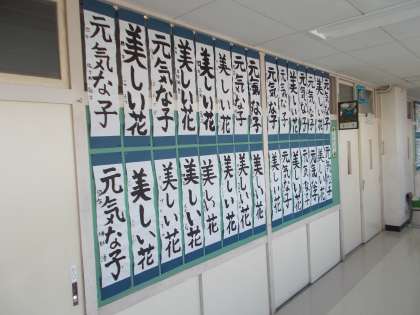 元気な子
美しい花
元気な子
美しい花
美しい花
美しい花
元気な子
元気な子
元気な子
美しい花
美しい花
元気な子
元気な子
元気な子
元気な子
美しい花
美しい花
美しい花
美しい花
美しい花
美しい花
美しい花
美しい花
元気な子
美しい花
元気な子
元気な子